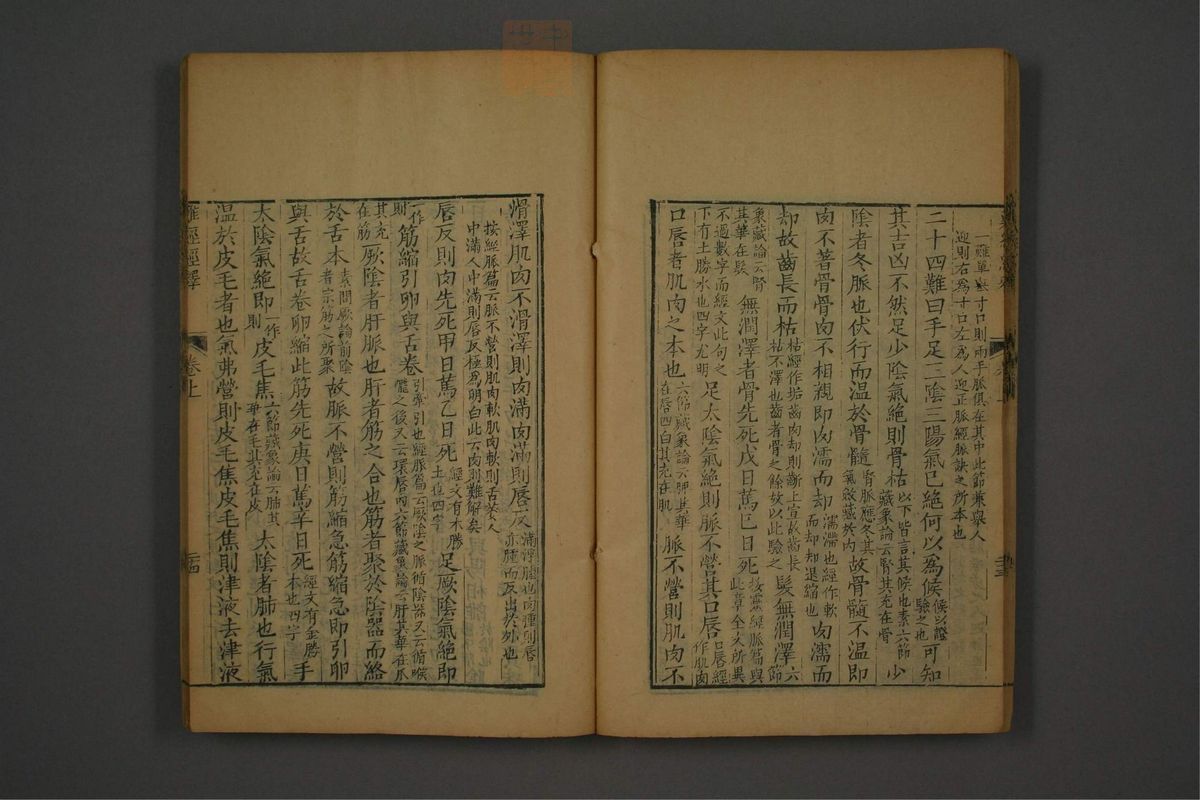 一難單以寸口則兩手脈俱在其中此節兼舉人
迎則右為寸口左為人迎正脈經脈訣之所本也
二十四難曰手足三陰三陽氣已絕何以為候候以證驗之也可知
其吉凶不然足少陰氣絕則骨枯以下皆言其候也素六節藏象論云腎其充在骨少
陰者冬脈也伏行而温於骨髓腎脈應冬其氣斂藏於內故骨髓不温即
肉不著骨骨肉不相親即肉濡而却濡滯也經作軟而却却退縮也肉濡而
却故齒長而枯枯經作垢齒肉却則齗上宣故齒長枯不澤也齒者骨之餘故以此驗之髮無潤澤六節
象藏論云腎其華在髮無潤澤者骨先死戊日篤己日死按靈經脈篇與此章全文所異
不過數字而經文此句之下有土勝水也四字尤明足太陰氣絕則脈不營其口唇口唇經作肌肉
口唇者肌肉之本也六節藏象論云脾其華在唇四白其充在肌脈不營則肌肉不
滑澤肌肉不滑澤則肉滿肉滿則唇反滿浮腫也肉腫則唇亦腫而反出於外也
按經脈篇云脈不營則肌肉軟肌肉軟則舌萎人
中滿人中滿則唇反極為明白此云肉則難解矣
唇反則肉先死甲日篤乙日死經文有木勝土也四字足厥陰氣絕即
一作則筋縮引卵與舌卷引牽引也經脈篇云厥陰之脈循陰器又云循喉嚨之後又云環唇內六節藏象論云肝其華在爪
其充在筋厥陰者肝脈也肝者筋之合也筋者聚於陰器而絡
於舌本素問厥論前陰者宗筋之所聚故脈不營則筋縮急筋縮急即引卵
與舌故舌卷卵縮此筋先死庚日篤辛日死經文有金勝木也四字手
太陰氣絕即一作則皮毛焦六節藏象論云肺其華在毛其充在皮太陰者肺也行氣
温於皮毛者也氣弗營則皮毛焦皮毛焦則津液去津液
難經經釋
卷上
二十四